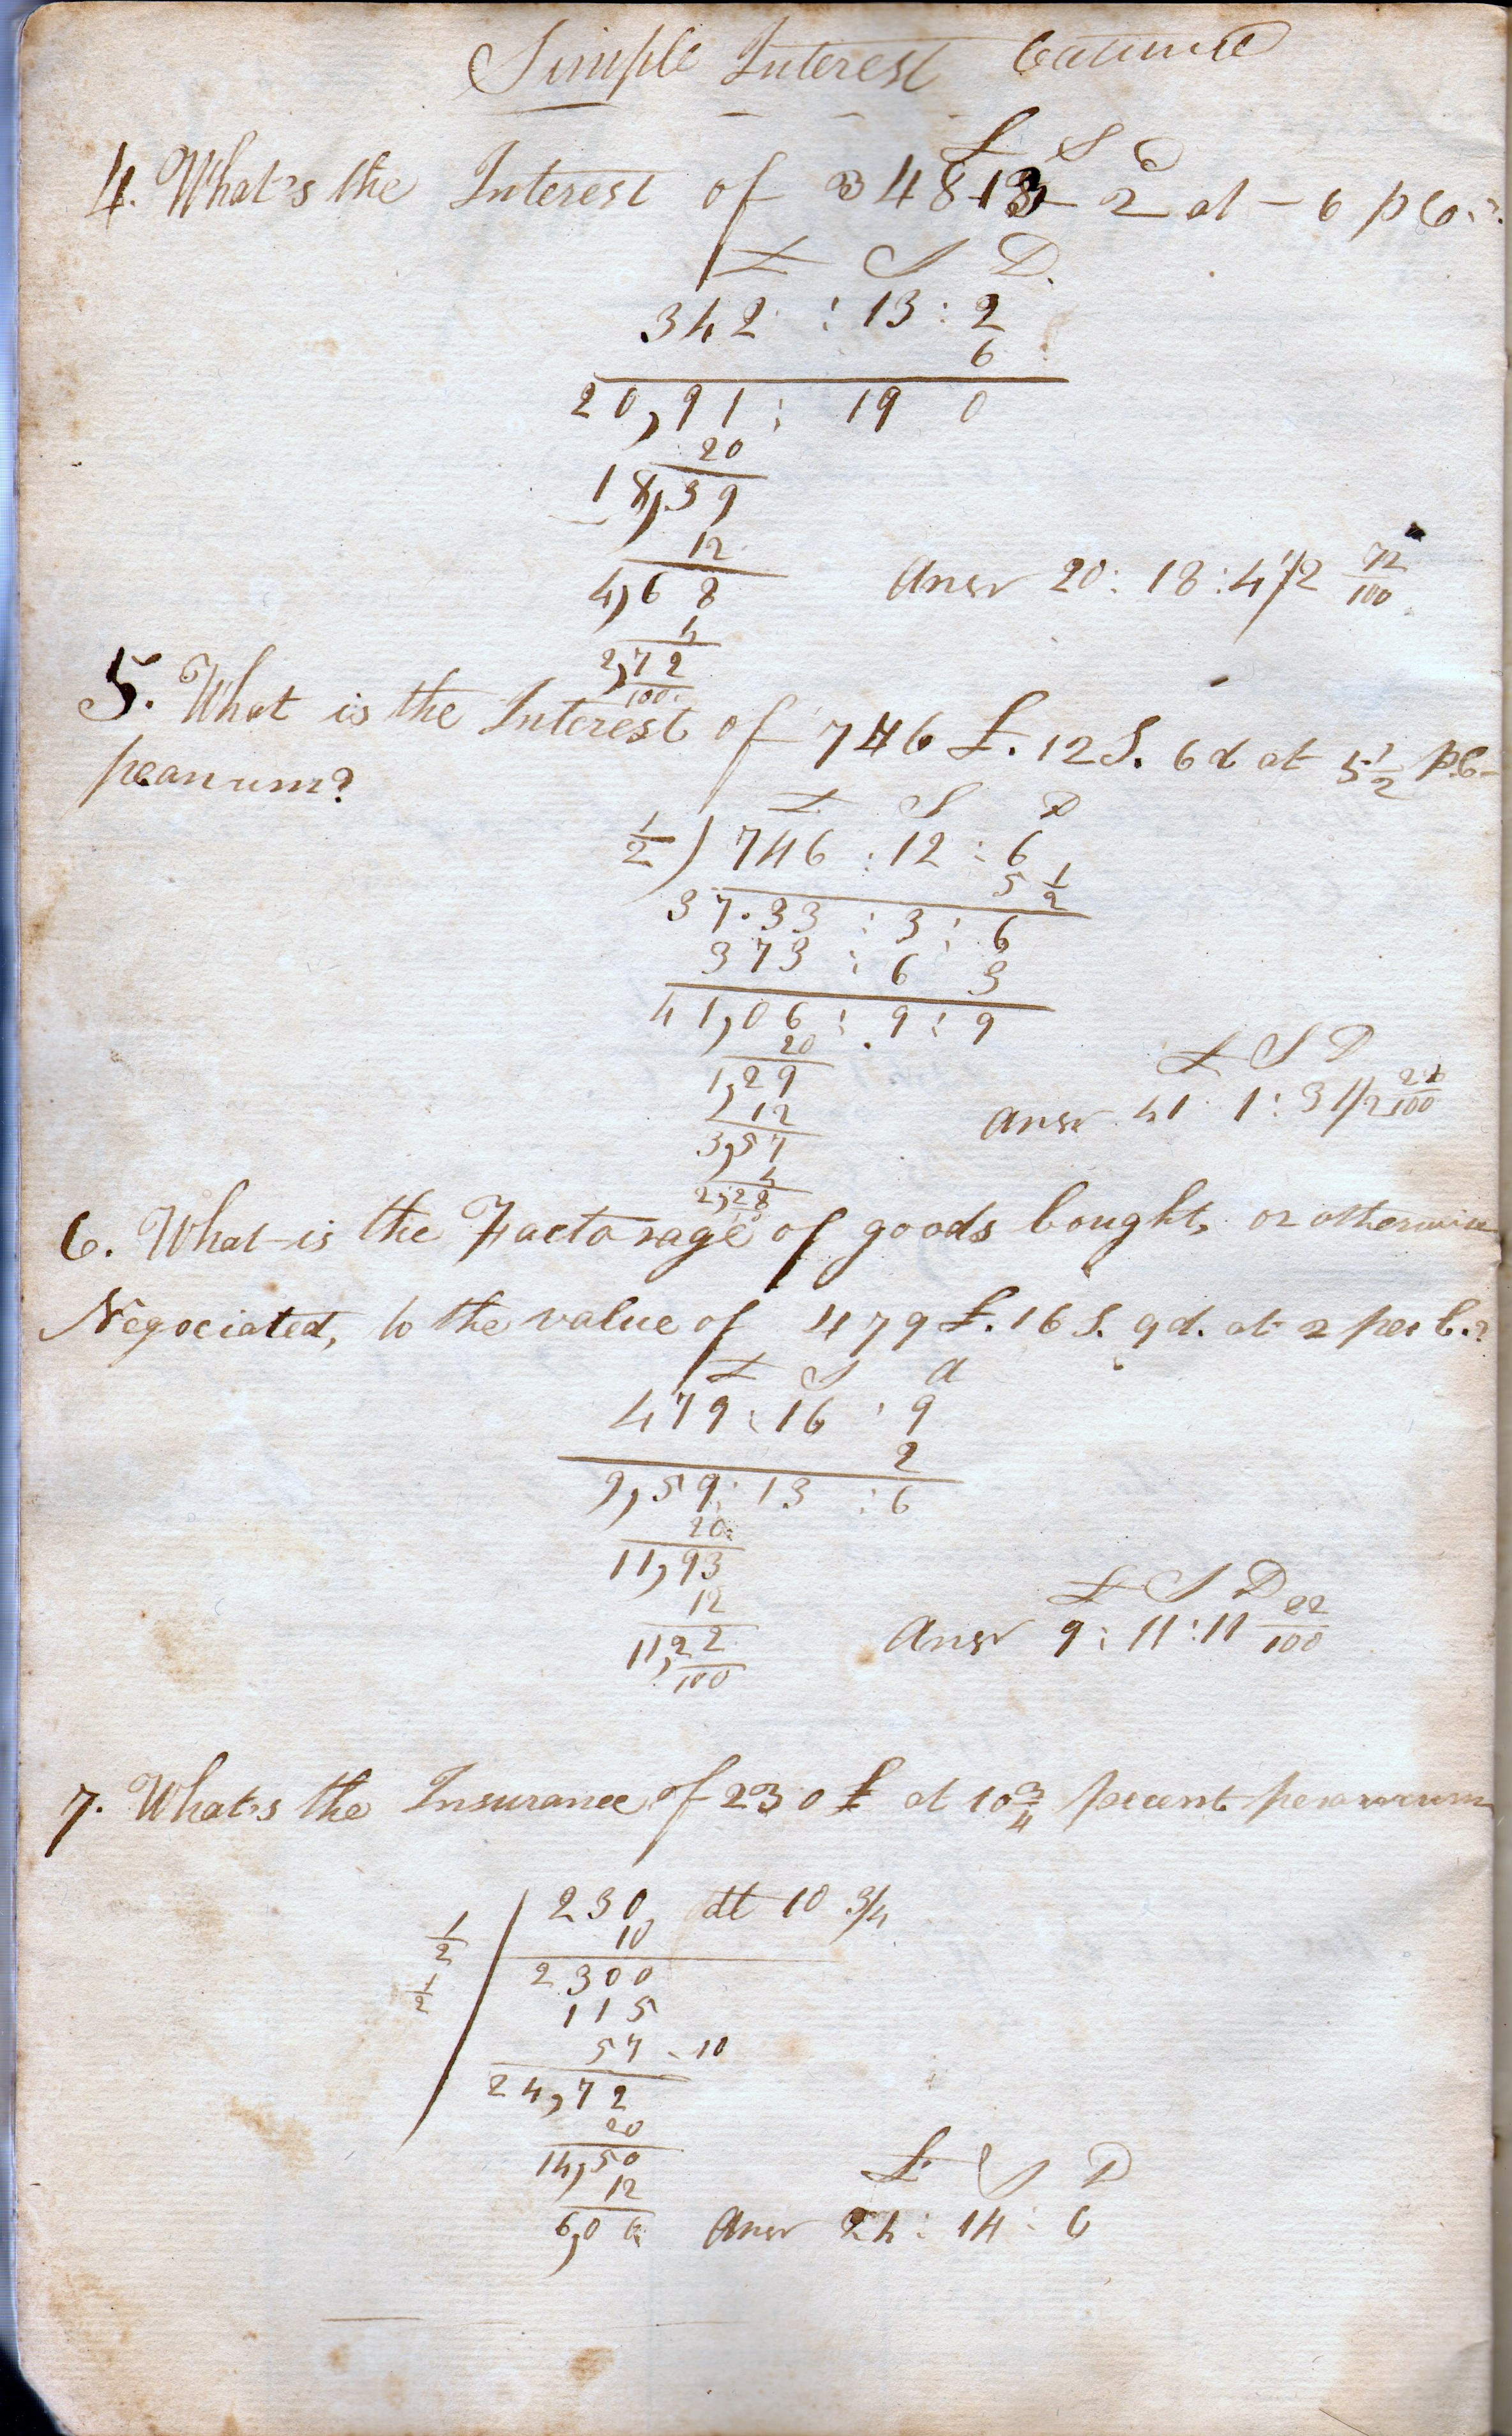 Simple Interest
£ S D
4. What's the Interest of 348 13 2 at - 6 p C.?
£ S D.
342 : 13 : 2
6
20,91 : 19 0
20
18,39
12
4,68
4
2,72
100.
Ansr 20 : 18 : 4 1/2 72/100
5. What is the Interest of 746 £. 12 S. 6 d at 5 1/2 p.C
peanum?
£ S D
1/2 ) 746 : 12 : 6
5 1/2
37.33 : 3 : 6
373 : 6 3
41,06 : 9 : 9
20
1,29
12
3,57
4
2,28
£ S D
Ansr 41 1 : 3 1/2 /100
6. What is the Factorage of goods bought, or otherwise
Negociated, to the value of 479 £. 16 S. 9 d. at 2 per C.?
£ S d
479 : 16 : 9
2
9,59 : 13 : 6
20
11,93
12
11,22
100
£ S D
Ansr 9 : 11 : 11 22/100
7. What's the Insurance of 230 £ at 10 3/4 pecent peranum
230 at 10 3/4
1/2 10
1/2 2300
115
57 - 10
24,72
20
14,50
12
6,06
£ S D
Ansr 24 : 14 : 6